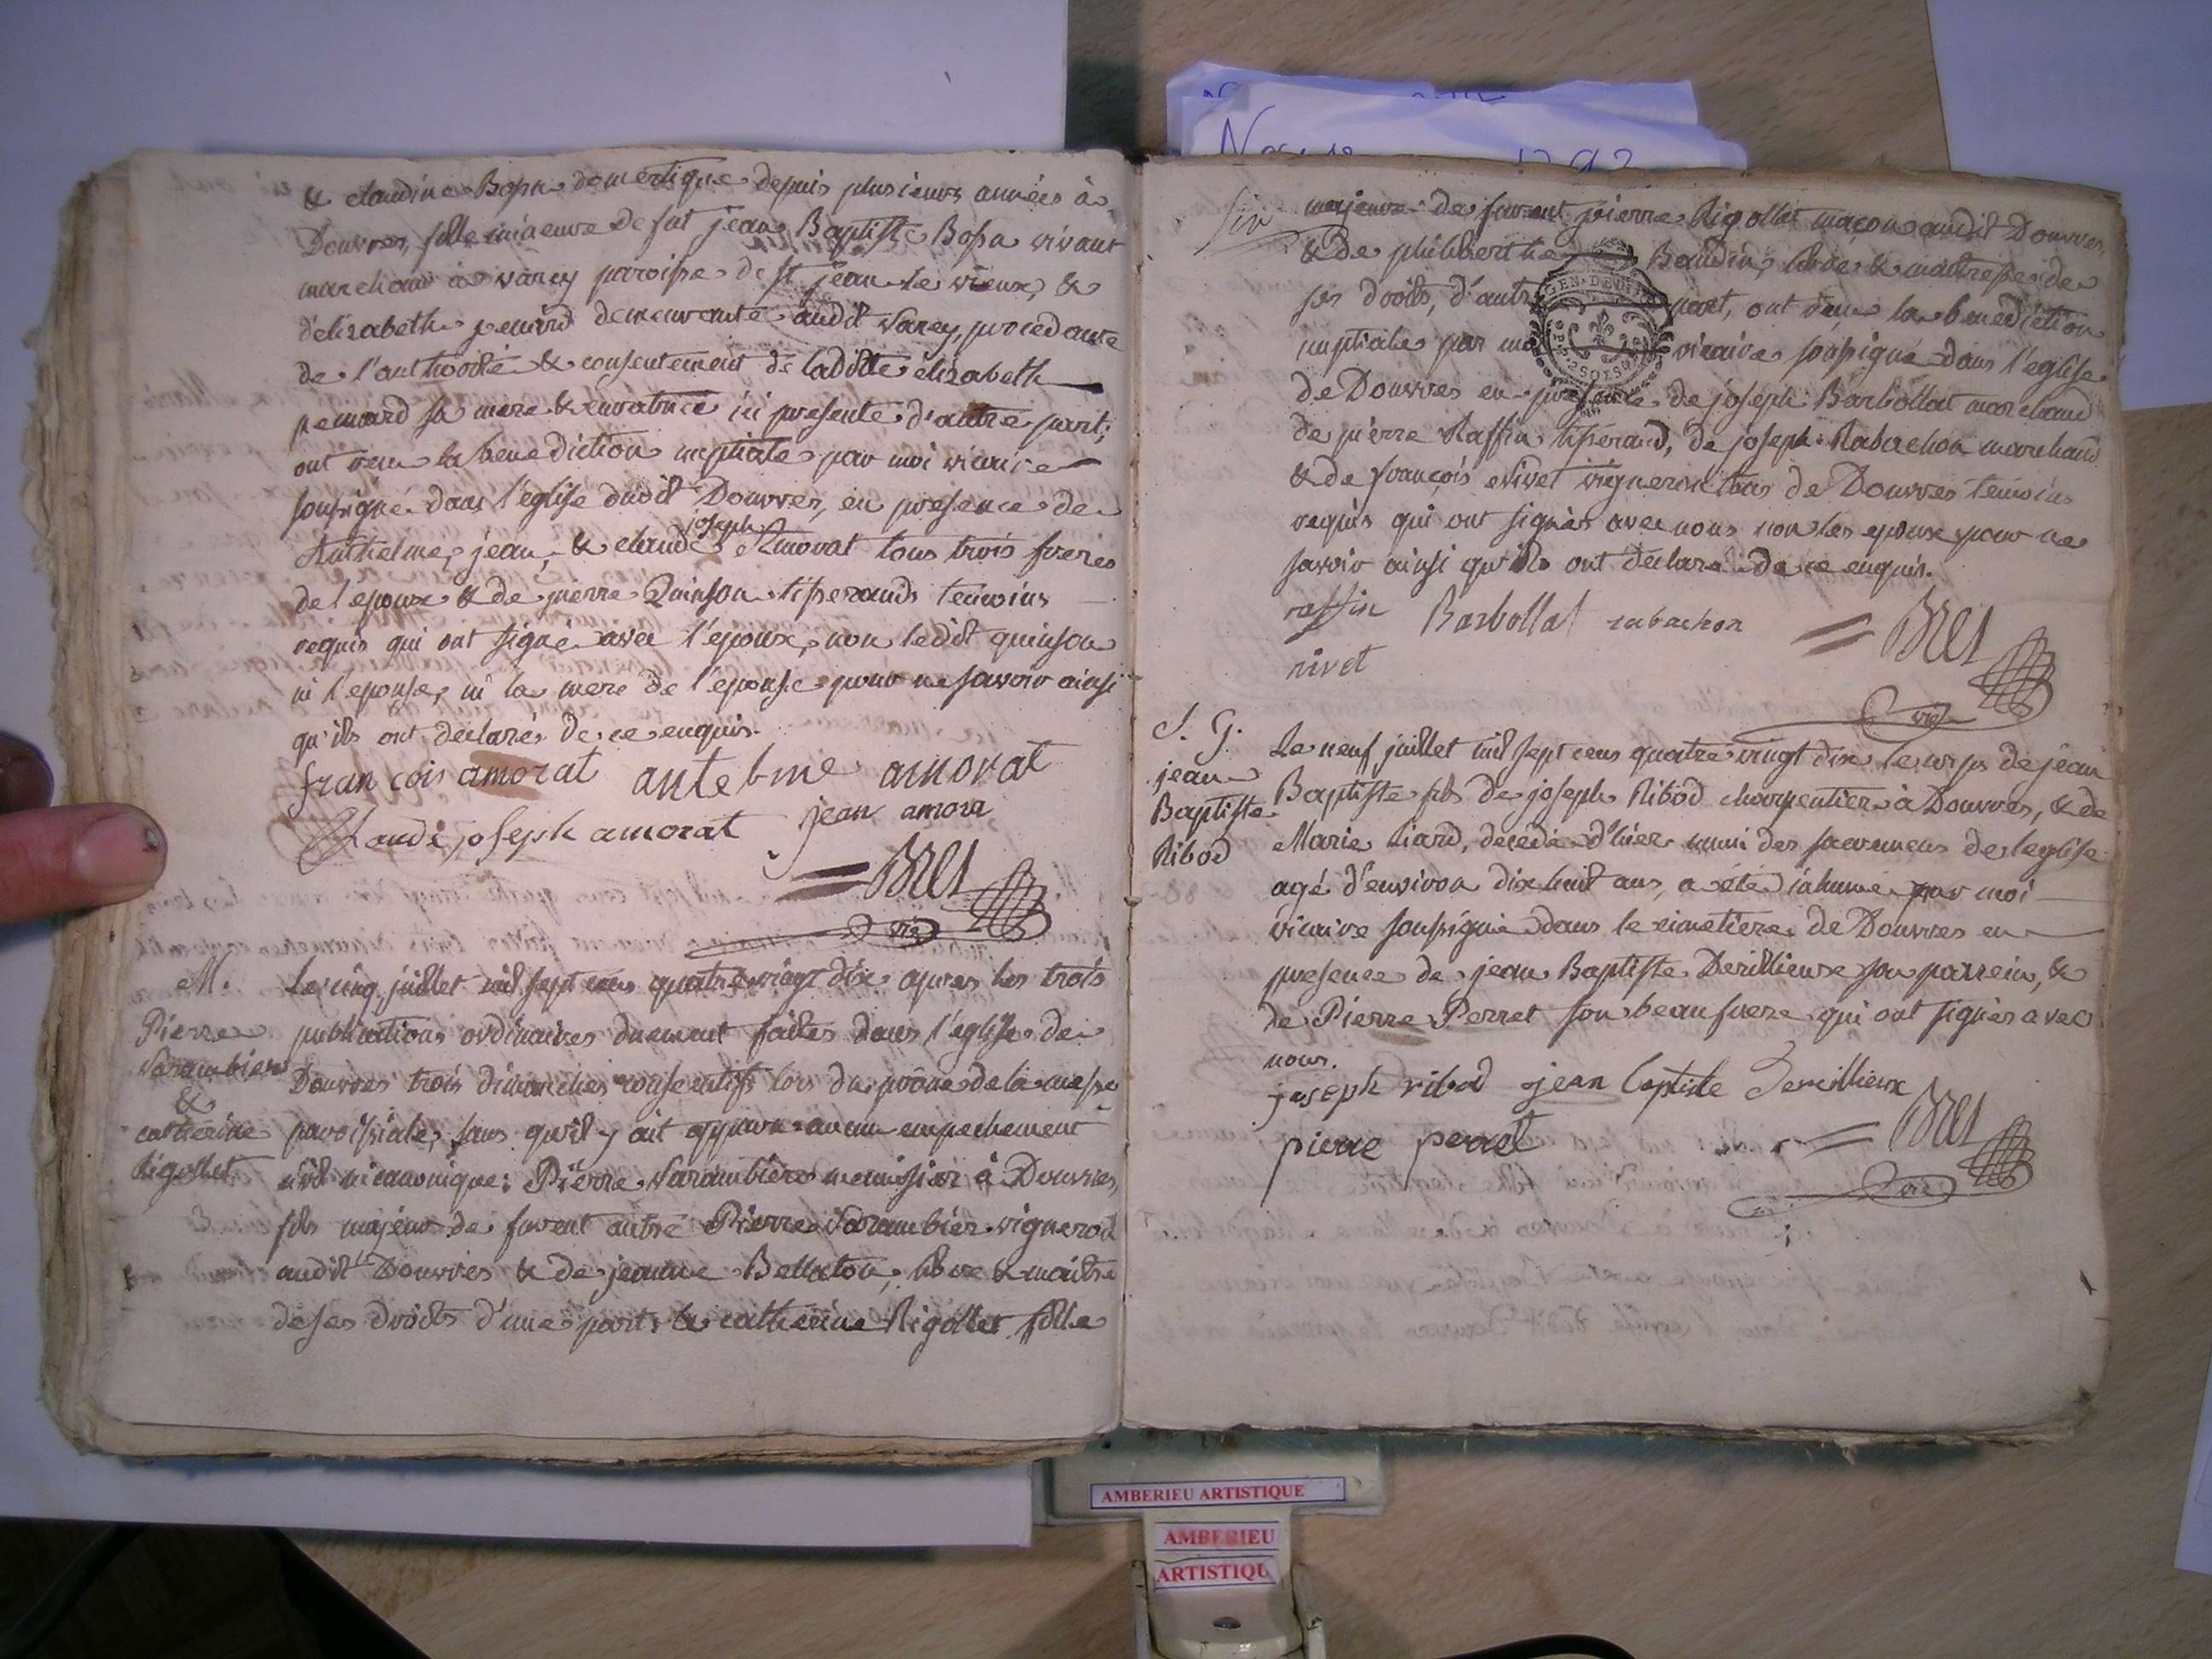 & claudine Bossu domestique depuis plusieurs années à
Douvres, fille mineure de fut jean Baptiste Bossu vivant
marchand à varey paroisse de st jean le vieux, &
d'elizabeth penard demeurante audit varey, procedante
de l'authorité & consentement de laditte élizabeth
penard sa mere & curatrice ici presente d'autre part;
ont reçu la benediction nuptiale par moi vicaire
soussigné dans l'eglise dudit Douvres, en presence de
joseph
Anthelme, jean, & claude Amorat tous trois freres
de l'epoux & de pierre Quinson tisserands temoins
requis qui ont signé avec l'epoux, non ledit quinson
ni l'epouse, ni la mere de l'épouse pour ne savoir ainsi
qu'ils ont déclarés de ce enquis.
francois amorat antelme amorat
Claude joseph amorat jean amora
= Bret
vic
M.
Pierre
Varambier
&
catherine
Rigollet
Le cinq juillet mil sept cens quatre vingt dix apres les trois
publications ordinaires duement faites dans l'eglise de
Douvres trois dimanches consecutifs lors du prône de la messe
paroissiale, sans qu'il y ait apparu aucun empechement
civil ni canonique: Pierre Varambier menuisier à Douvres,
fils majeur de furent autre Pierre Varambier vigneron
audit Douvres & de jeanne Bellaton, libre & maitre
de ses droits d'une part; & catherine Rigollet fille
majeure de furent pierre Rigollet maçon audit Douvres,
& de philiberthe Baudin, libre & maitresse de
ses droits, d'autre part, ont reçu la benediction
nuptiale par moi vicaire soussigné dans l'eglise
de Douvres en presence de joseph Barbollat marchand
de pierre Raffin tisserand, de joseph Rabachon marchand
& de françois nivet vigneron tous de Douvres temoins
requis qui ont signés avec nous non les epoux pour ne
savoir ainsi qu'ils ont déclaré de ce enquis.
raffin Barbollat rabachon = Bret
nivet
vic
S. G.
jean
Baptiste
Ribod
Le neuf juillet mil sept cens quatre vingt dix le corps de jean
Baptiste fils de joseph Ribod charpentier à Douvres, & de
Marie Liard, décédé d'hier muni des sacremens de l'eglise
agé d'environ dix huit ans, a été inhumé par moi
vicaire soussigné dans le cimetiere de Douvres en
presence de jean Baptiste Derillieux son parrein, &
de Pierre Perret son beaufrere qui ont signés avec
nous.
joseph ribod jean baptiste Dereillieux
pierre perret = Bret
vic
AMBERIEU ARTISTIQUE
AMBERIEU
ARTISTIQU